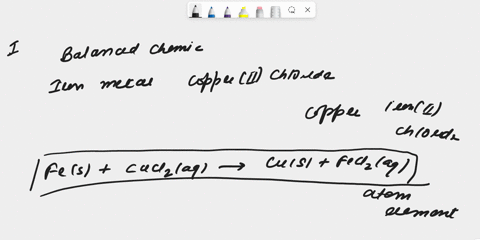 I Balanced Chemic
Iron metal Copper(II) Chloride
Copper iron(II)
Chloride
Fe(s) + CuCl2(aq) → Cu(s) + FeCl2(aq)
atom
element